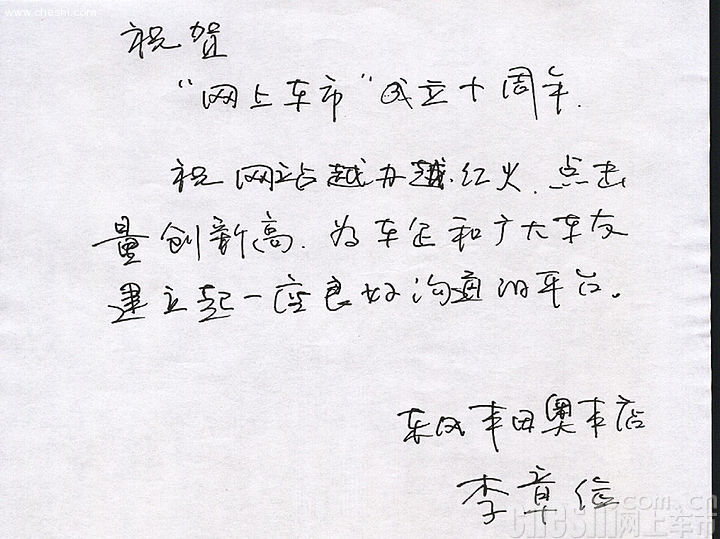 www.cheshi.com
祝贺
“网上车市”成立十周年.
祝网站越办越红火.点击
量创新高.为车企和广大车友
建立起一座良好沟通的平台。
东风丰田奥丰店
李章
.com.cn
cheshi网上车市